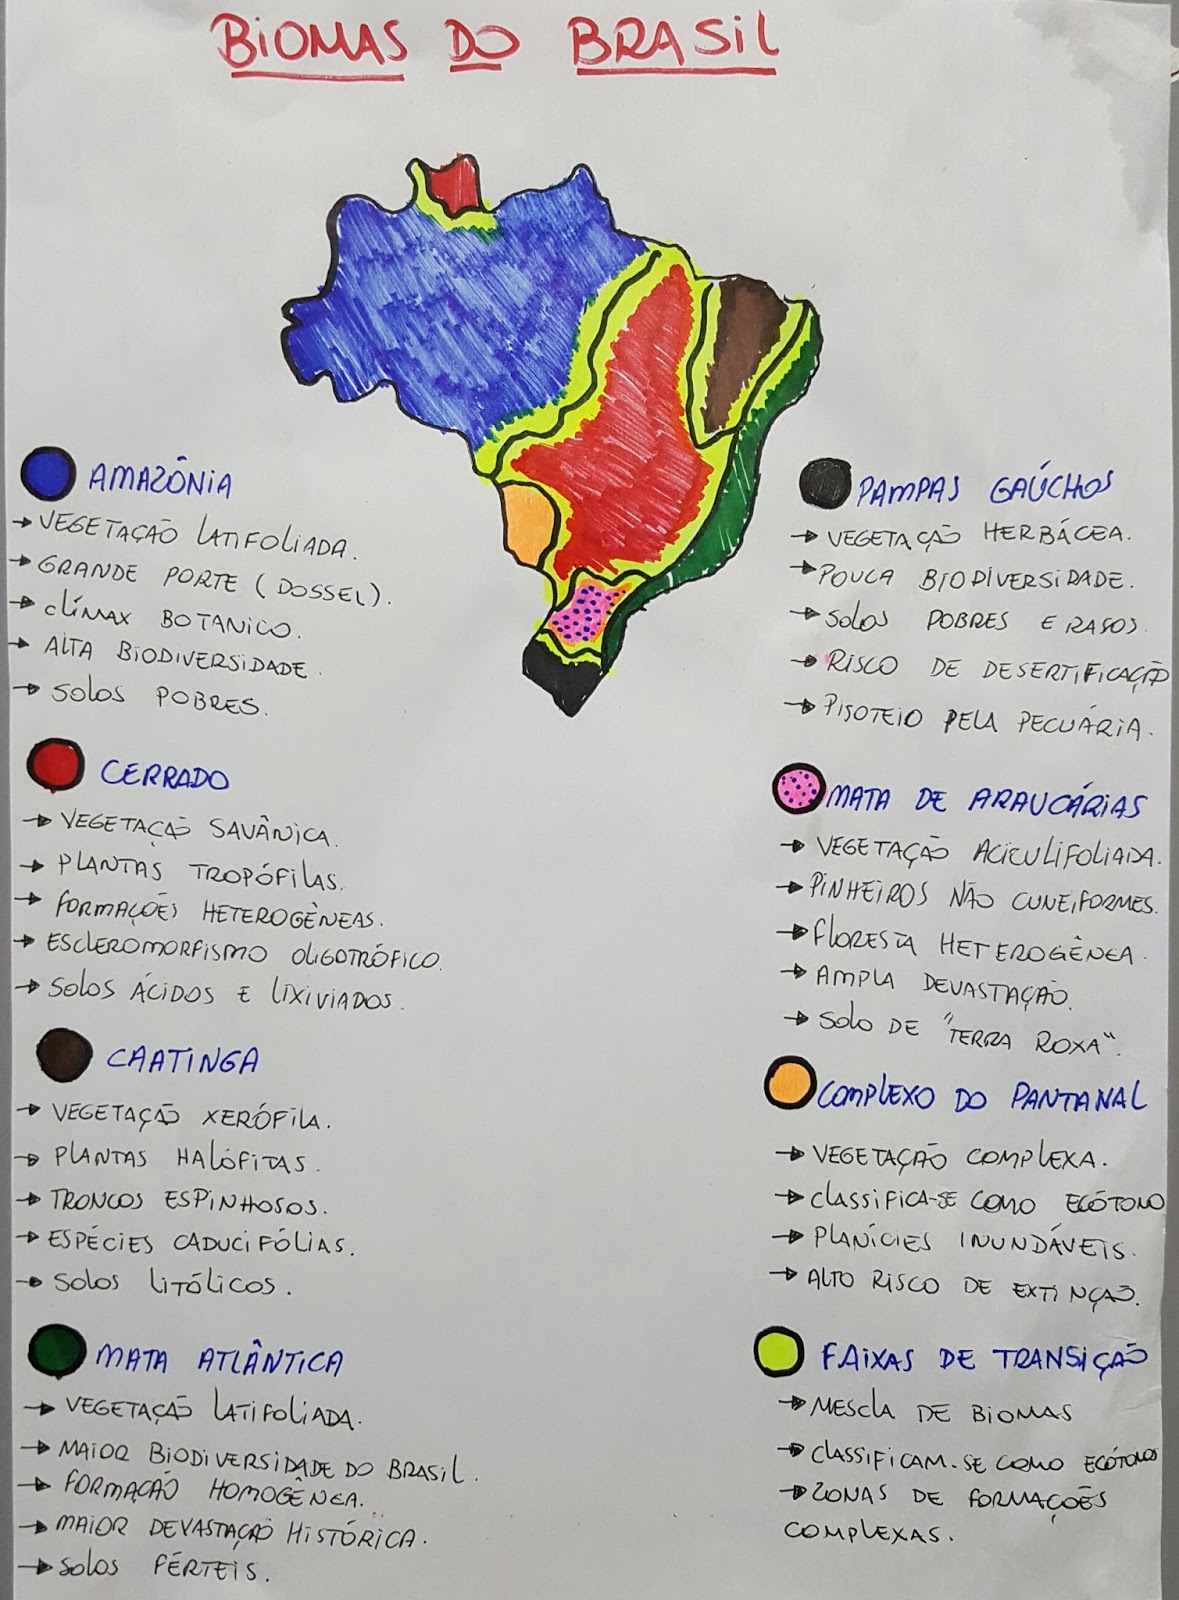 BIOMAS DO BRASIL
AMAZÔNIA
→ VEGETAÇÃO LATIFOLIADA.
→ GRANDE PORTE (DOSSEL).
→ CLÍMAX BOTANICO.
→ ALTA BIODIVERSIDADE.
→ SOLOS POBRES.
CERRADO
→ VEGETAÇÃO SAVÂNICA.
→ PLANTAS TROPÓFILAS.
→ FORMAÇÕES HETEROGÊNEAS.
→ ESCLEROMORFISMO OLIGOTRÓFICO.
→ SOLOS ÁCIDOS E LIXIVIADOS.
CAATINGA
→ VEGETAÇÃO XERÓFILA.
→ PLANTAS HALÓFITAS.
→ TRONCOS ESPINHOSOS.
→ ESPÉCIES CADUCIFÓLIAS.
→ SOLOS LITÓLICOS.
MATA ATLÂNTICA
→ VEGETAÇÃO LATIFOLIADA.
→ MAIOR BIODIVERSIDADE DO BRASIL.
→ FORMAÇÃO HOMOGÊNEA.
→ MAIOR DEVASTAÇÃO HISTÓRICA.
→ SOLOS FÉRTEIS.
PAMPAS GAÚCHOS
→ VEGETAÇÃO HERBÁCEA.
→ POUCA BIODIVERSIDADE.
→ SOLOS POBRES E RASOS.
→ RISCO DE DESERTIFICAÇÃO
→ PISOTEIO PELA PECUÁRIA.
MATA DE ARAUCÁRIAS
→ VEGETAÇÃO ACICULIFOLIADA.
→ PINHEIROS NÃO CUNEIFORMES.
→ FLORESTA HETEROGÊNEA.
→ AMPLA DEVASTAÇÃO.
→ SOLO DE "TERRA ROXA".
COMPLEXO DO PANTANAL
→ VEGETAÇÃO COMPLEXA.
→ CLASSIFICA-SE COMO ECÓTONO
→ PLANÍCIES INUNDÁVEIS.
→ ALTO RISCO DE EXTINÇÃO.
FAIXAS DE TRANSIÇÃO
→ MESCLA DE BIOMAS
→ CLASSIFICAM-SE COMO ECÓTONOS
→ ZONAS DE FORMAÇÕES
COMPLEXAS.